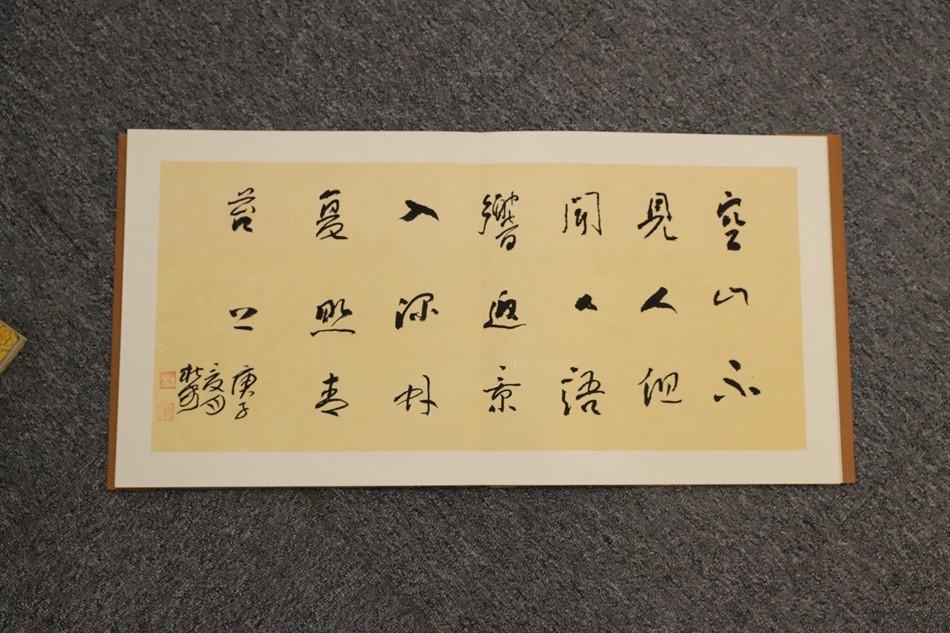 空山不
見人但
聞人語
響返景
入深林
复照青
苔上
庚子
夏月